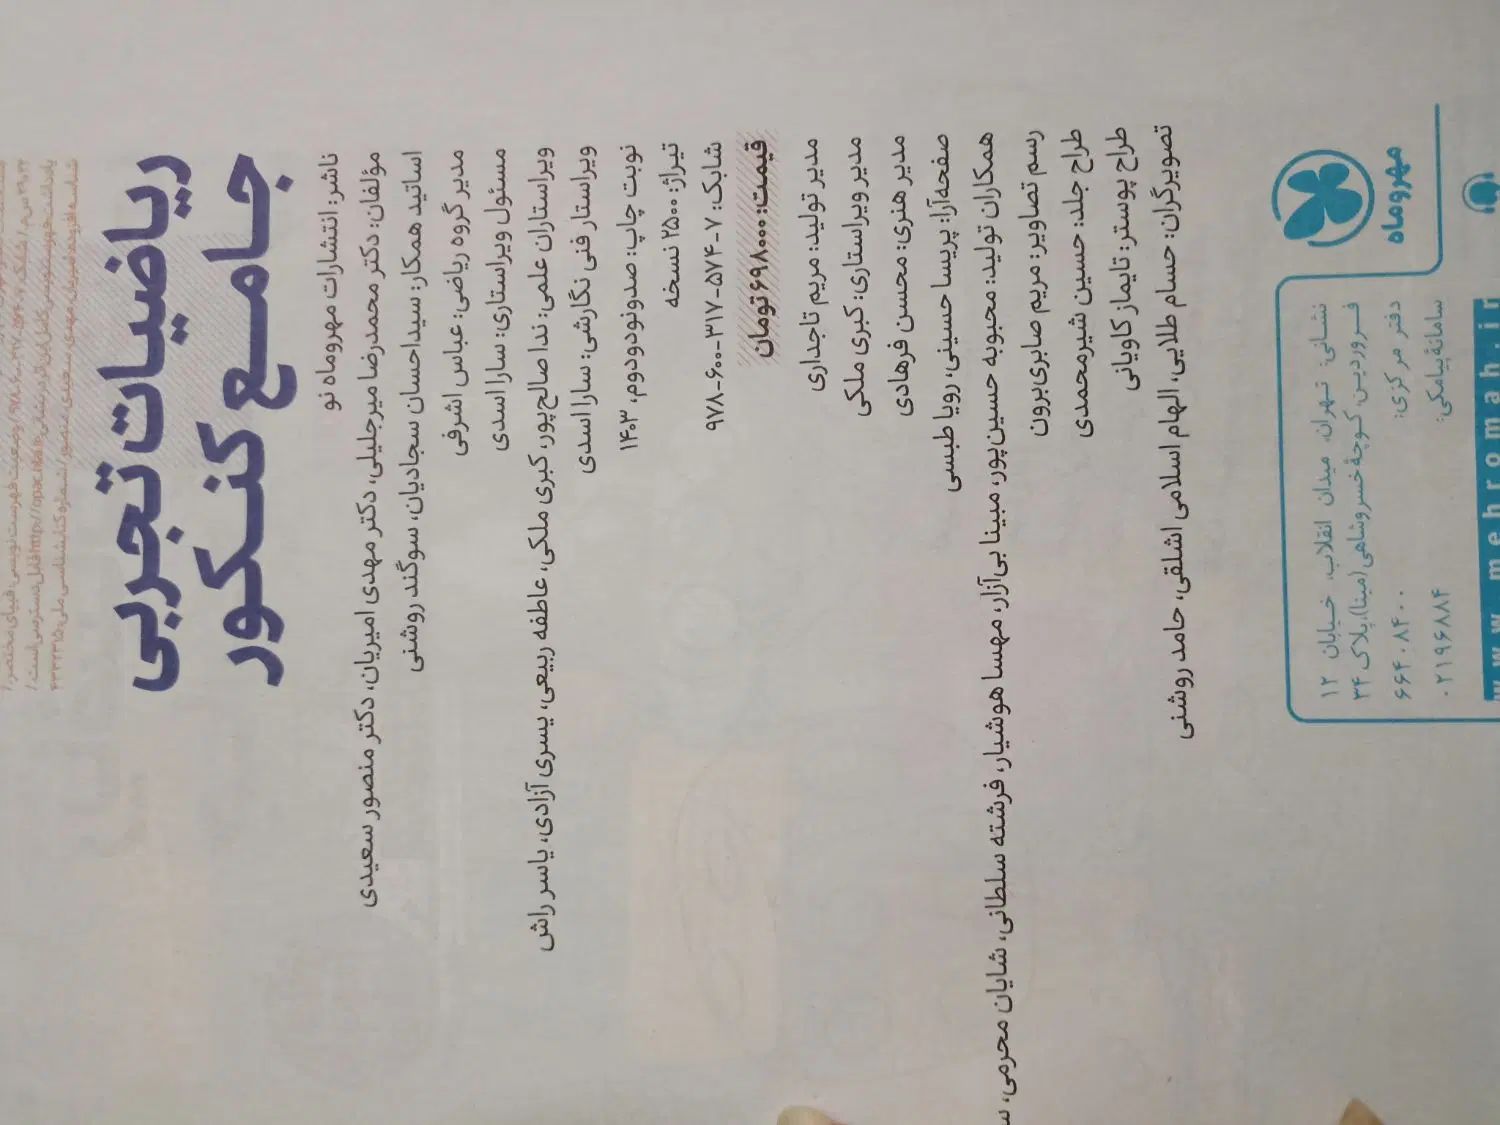 ریاضیات تجربی
جامع کنکور
ناشر: انتشارات مهروماه نو
مؤلفان: دکتر محمدرضا میرجلیلی، دکتر مهدی امیریان، دکتر منصور سعیدی
اساتید همکار: سیداحسان سجادیان، سوگند روشنی
مدیر گروه ریاضی: عباس اشرفی
مسئول ویراستاری: سارا اسدی
ویراستاران علمی: ندا صالح‌پور، کبری ملکی، عاطفه ربیعی، یسری آزادی، یاسر راش
ویراستار فنی نگارشی: سارا اسدی
نوبت چاپ: صدونودودوم، ۱۴۰۳
تیراژ: ۲۵۰۰ نسخه
شابک: ۷-۵۷۴-۳۱۷-۶۰۰-۹۷۸
قیمت: ۶۹۸۰۰۰ تومان
مدیر تولید: مریم تاجداری
مدیر ویراستاری: کبری ملکی
مدیر هنری: محسن فرهادی
صفحه‌آرا: پریسا حسینی، رویا طبسی
همکاران تولید: محبوبه حسین‌پور، مبینا بی‌آزار، مهسا هوشیار، فرشته سلطانی، شایان محرمی،
رسم تصاویر: مریم صابری‌برون
طراح جلد: حسین شیرمحمدی
طراح پوستر: تایماز کاویانی
تصویرگران: حسام طلایی، الهام اسلامی اشلقی، حامد روشنی
مهروماه
نشانی: تهران، میدان انقلاب، خیابان ۱۲
فروردین، کوچهٔ خسروشاهی (مینا)، پلاک ۳۴
دفتر مرکزی: ۶۶۴۰۸۴۰۰
سامانهٔ پیامکی: ۰۲۱۹۶۸۸۴
www.mehromah.ir